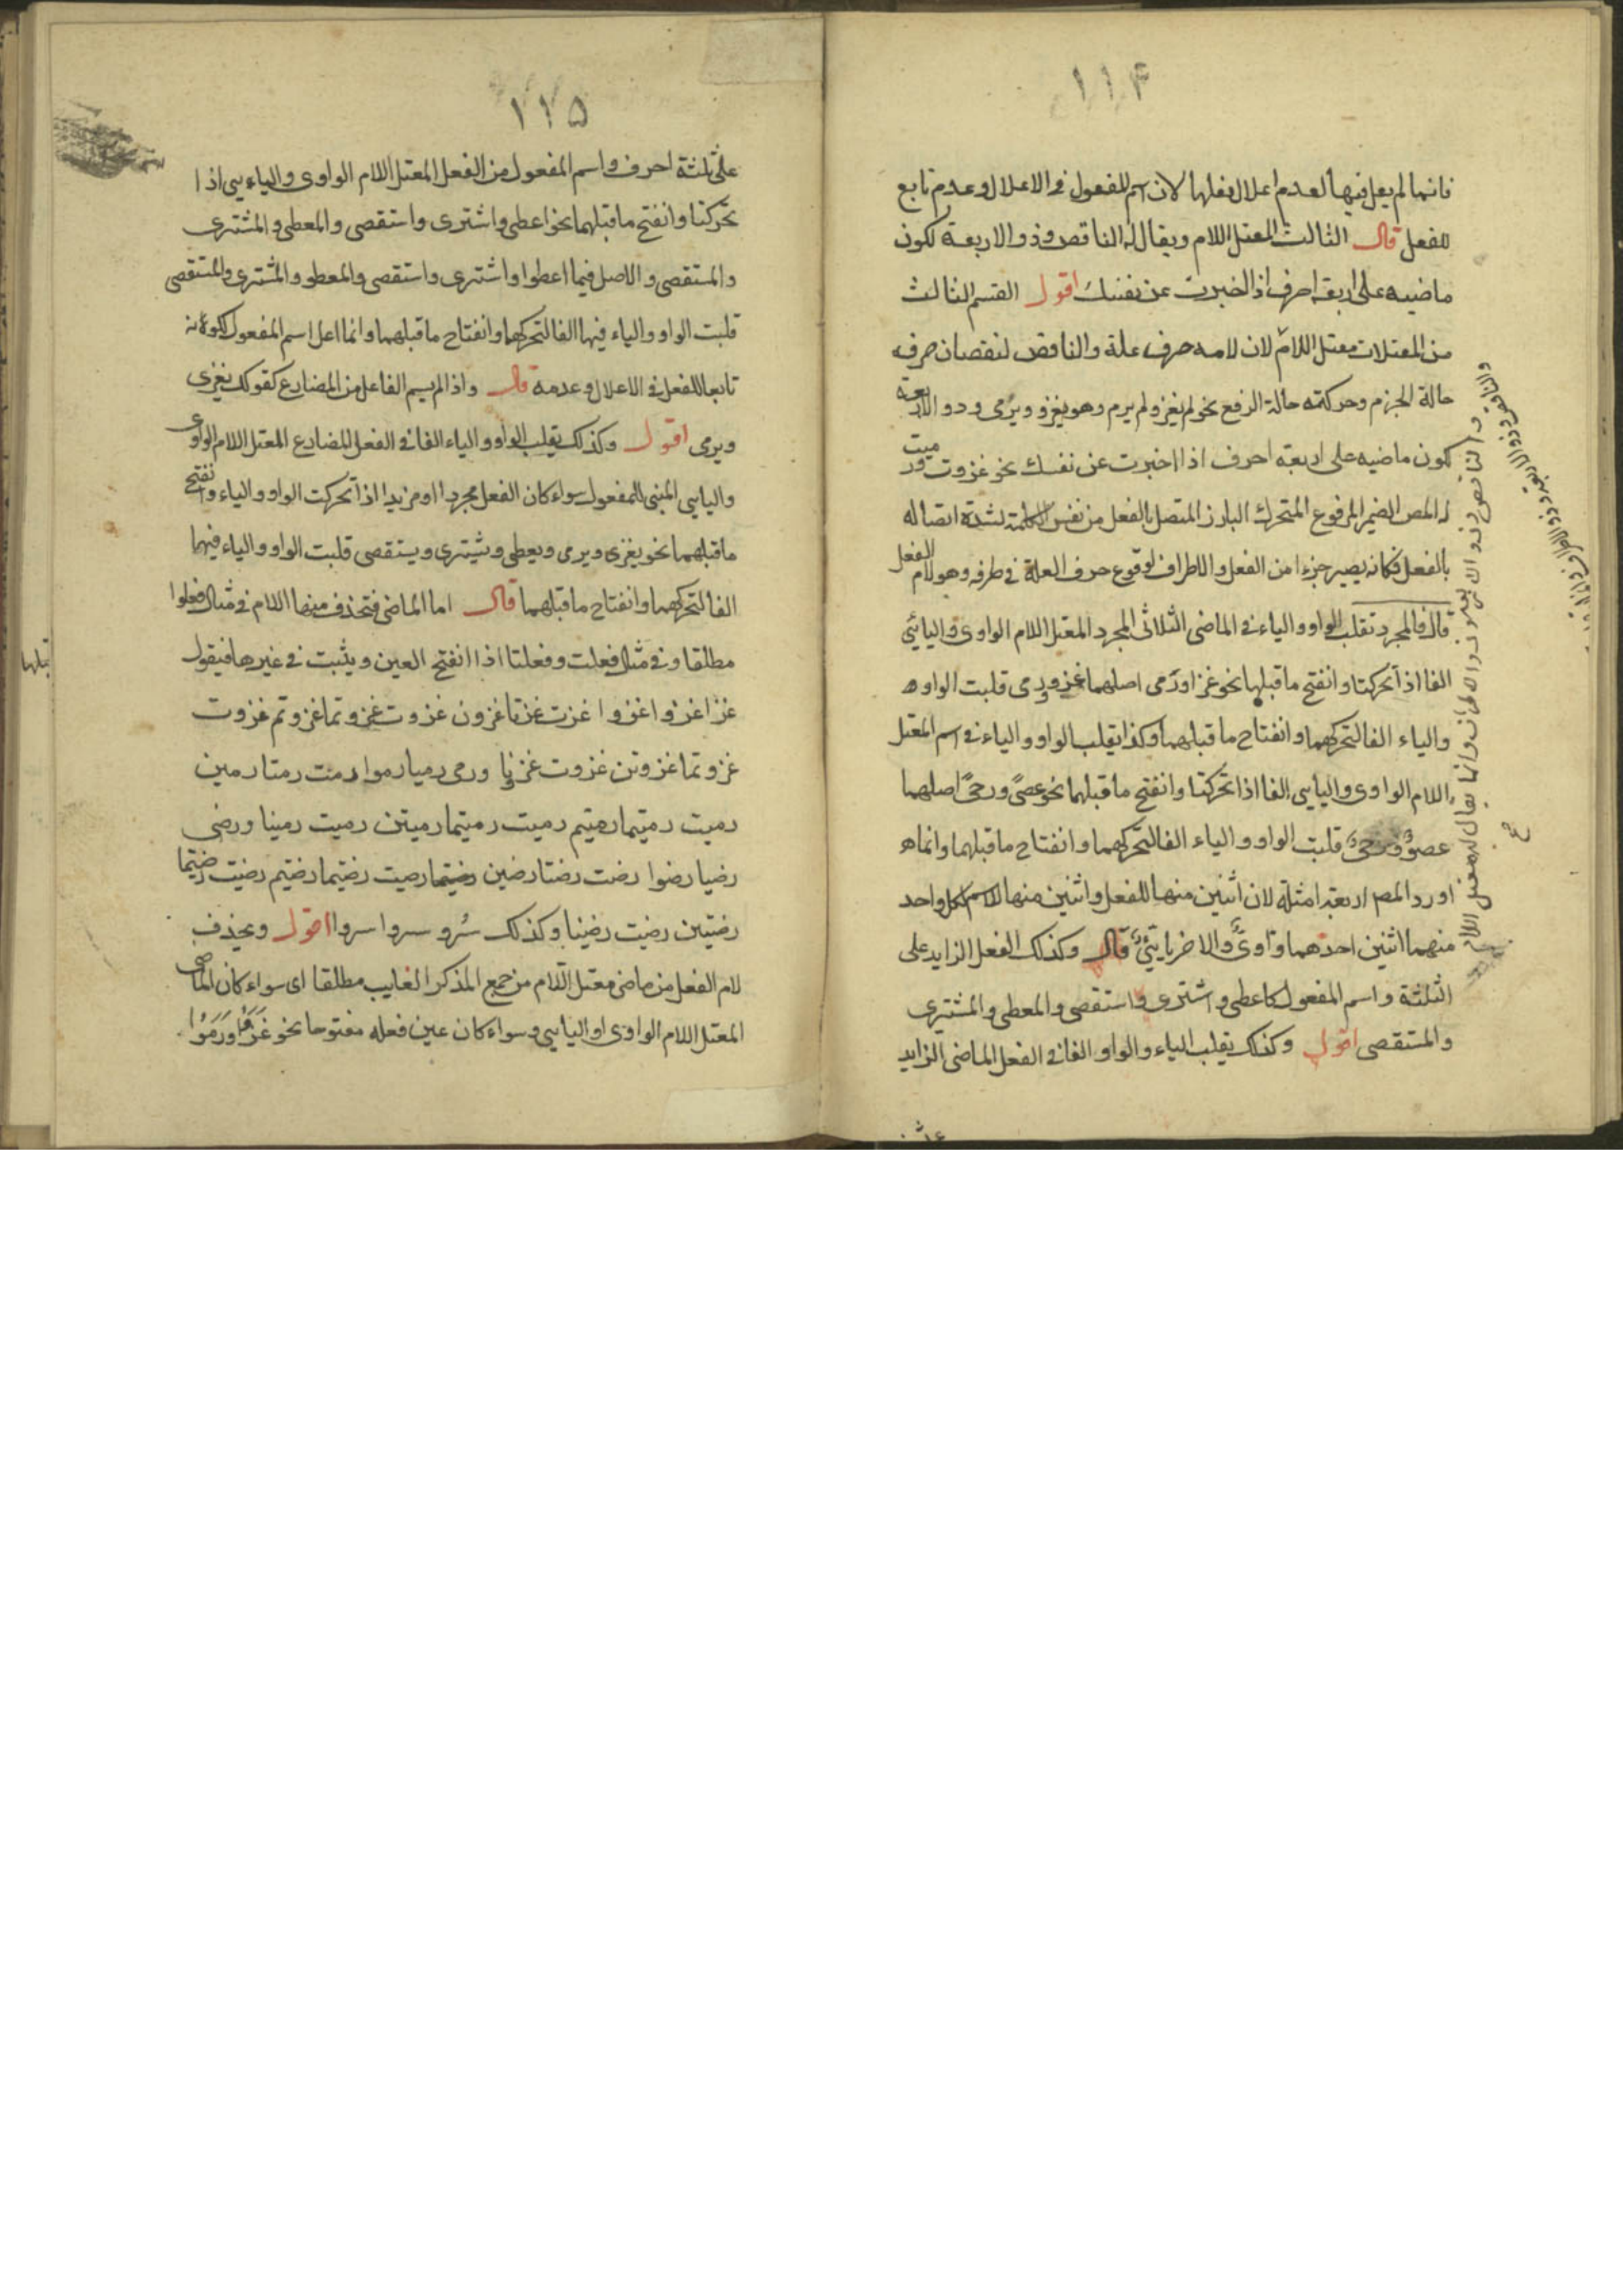 ١١۴
فانما لم يعل فيها لعدم اعلال فعلها لان اسم المفعول فى الاعلال وعدمه تابع
للفعل قال الثالث المعتل اللام ويقال له الناقص وذو الاربعة لكون
ماضيه على اربعة احرف اذا اخبرت عن نفسك اقول القسم الثالث
من المعتلات معتل اللام لان لامه حرف علة والناقص لنقصان حرف
حالة الجزم وحركته حالة الرفع نحو لم يغز ولم يرم وهو يغزو ويرمى وذو الاربعة
لكون ماضيه على اربعة احرف اذا اخبرت عن نفسك نحو غزوت ورميت
المص الضمير المرفوع المتحرك البارز المتصل بالفعل من نفس الكلمة لشدة اتصاله
بالفعل فكانه يصير جزءا من الفعل والاطراف لوقوع حرف العلة فى طرفه وهو لام الفعل
قال فالمجرد تقلب الواو والياء فى الماضى الثلاثى المجرد المعتل اللام الواوى واليائى
الفا اذا تحركتا وانفتح ما قبلهما نحو غزا ورمى اصلهما غزو ورمى قلبت الواو
والياء الفا لتحركهما وانفتاح ما قبلهما وكذا يقلب الواو والياء فى اسم المعتل
اللام الواوى واليايى الفا اذا تحركتا وانفتح ما قبلهما نحو عصىً ورحىً اصلهما
عصوٌ ورحىٌ قلبت الواو والياء الفا لتحركهما وانفتاح ما قبلهما وانما
اورد المص اربعة امثلة لان اثنين منها للفعل واثنين منها للاسم لكل واحد
منهما اثنين احدهما واوىٌّ والاخر يايىٌّ قال وكذلك الفعل الزايد على
الثلثة واسم المفعول كاعطى واشترى واستقصى والمعطى والمشترى
والمستقصى اقول وكذلك يقلب الياء والواو الفا فى الفعل الماضى الزايد
والناقص وذو الاربعة
١١۵
على ثلثة احرف واسم المفعول من الفعل المعتل اللام الواوى والياءيى اذا
تحركتا وانفتح ما قبلهما نحو اعطى واشترى واستقصى والمعطى والمشترى
والمستقصى والاصل فيها اعطوا واشترى واستقصى والمعطو والمشترى والمستقصى
قلبت الواو والياء فيها الفا لتحركهما وانفتاح ما قبلهما وانما اعل اسم المفعول لكونه
تابعا للفعل فى الاعلال وعدمه قال واذا لم يسم الفاعل من المضارع كقولك يغزى
ويرمى اقول وكذلك يقلب الواو والياء الفا فى الفعل المضارع المعتل اللام الواوى
واليايى المبنى للمفعول سواء كان الفعل مجردا او مزيدا اذا تحركت الواو والياء وانفتح
ما قبلهما نحو يغزى ويرمى ويعطى ويشترى ويستقصى قلبت الواو والياء فيهما
الفا لتحركهما وانفتاح ما قبلهما قال اما الماضى فتحذف منها اللام فى مثال فعلوا
مطلقا وفى مثال فعلت وفعلتا اذا انفتح العين ويثبت فى غيرها فيقول
غزا غزوا غزوا غزت غزتا غزون غزوت غزوتما غزوتم غزوت
غزوتما غزوتن غزوت غزونا ورمى رميا رموا رمت رمتا رمين
رميت رميتما رميتم رميت رميتما رميتن رميت رمينا ورضى
رضيا رضوا رضت رضتا رضين رضيت رضيتما رضيتم رضيت رضيتما
رضيتن رضيت رضينا وكذلك سرو سروا سروا اقول ويحذف
لام الفعل من ماضى معتل اللام من جمع المذكر الغايب مطلقا اى سواء كان الماضى
المعتل اللام الواوى او اليايى وسواء كان عين فعله مفتوحا نحو غَزَوْا ورَمَوْا